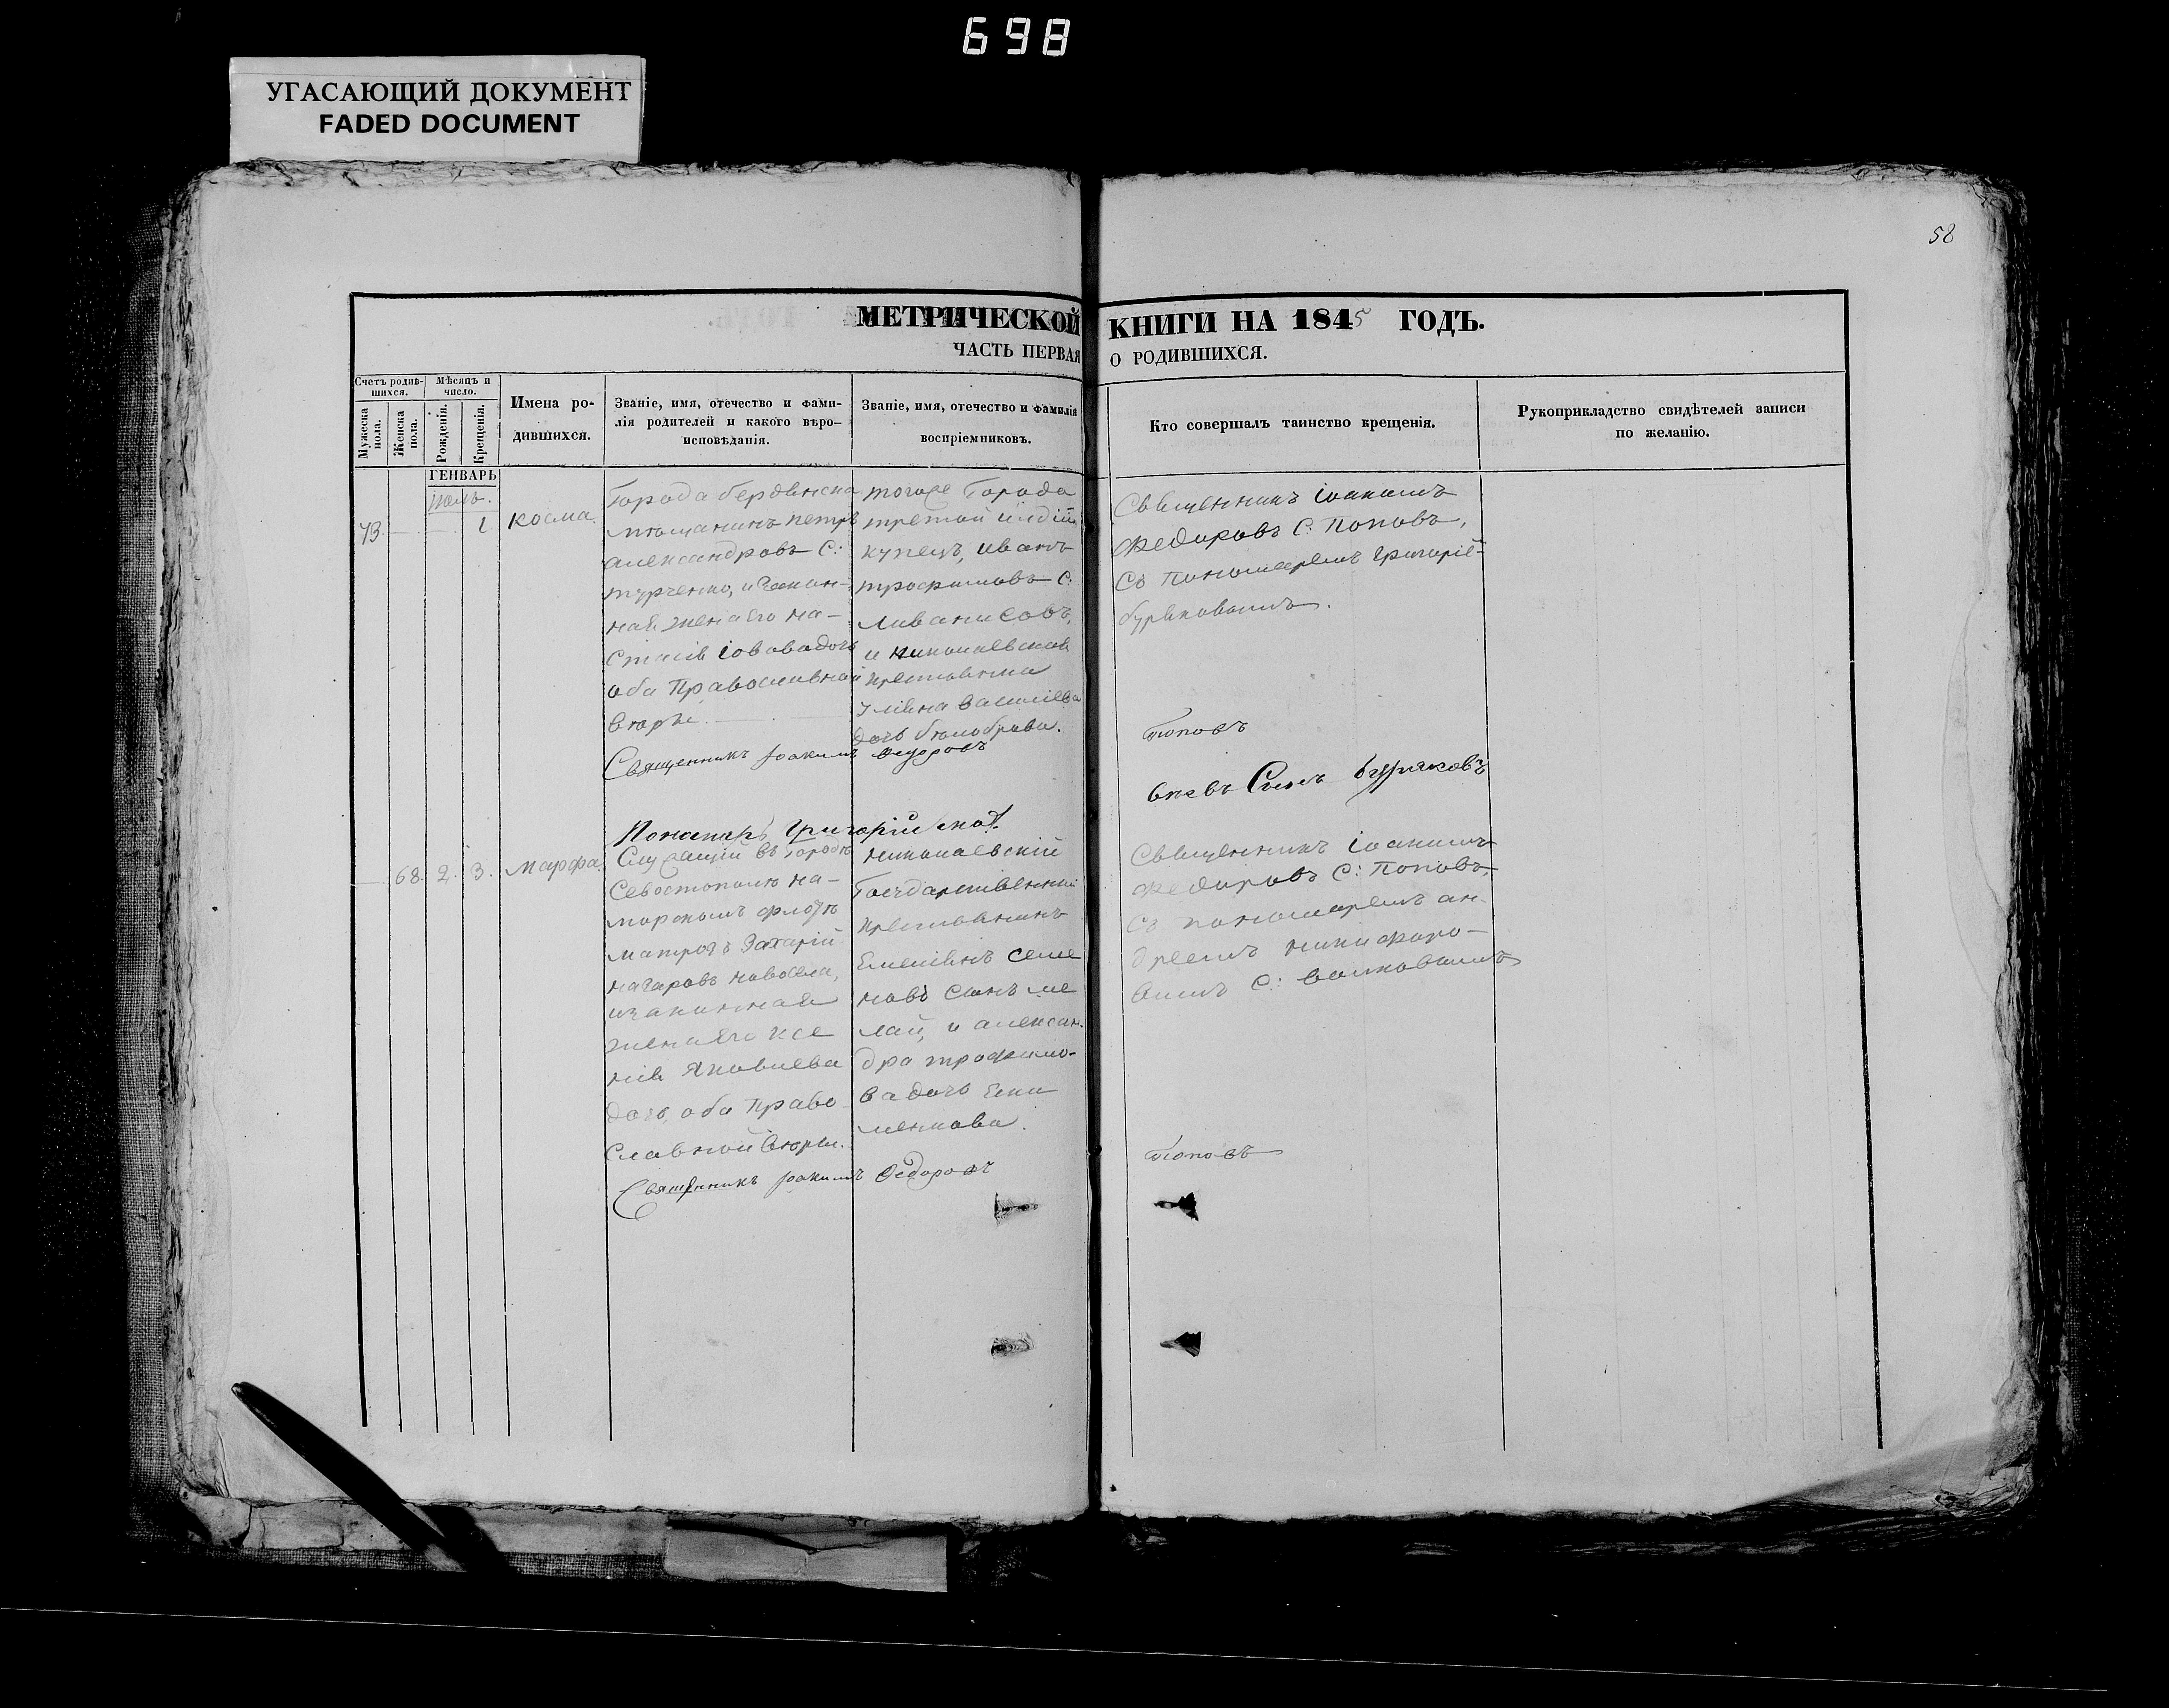 698
УГАСАЮЩИЙ ДОКУМЕНТ
FADED DOCUMENT
58
МЕТРИЧЕСКОЙ КНИГИ НА 1845 ГОДЪ.
ЧАСТЬ ПЕРВАЯ О РОДИВШИХСЯ.
Счетъ родив-
шихся.
Мужеска пола.
Женска пола.
Мѣсяцъ и
число.
Рожденія.
Крещенія.
Имена ро-
дившихся.
Званіе, имя, отечество и фами-
лія родителей и какого вѣро-
исповѣданія.
Званіе, имя, отечество и фамилія
воспріемниковъ.
Кто совершалъ таинство крещенія.
Рукоприкладство свидѣтелей записи
по желанію.
ГЕНВАРЬ
73.
1
Косма.
Города бердянска
мѣщанинъ петръ
александровъ С:
турченко, и закон-
ная жена его на-
стасія іовова дочь
оба Православной
вѣры.
тогоже Города
третой гилдіи
купецъ, иванъ
трофимовъ С:
Ливанисовъ,
и николаевская
крестьянка
Уліяна василіева
дочь бѣлоброва.
Священникъ іоакимъ
федоровъ С: Поповъ,
съ пономаремъ Григоріе-
буряковымъ.
Священникъ Іоакимъ Федоровъ Поповъ
Пономарь Григорій Яков
левъ Сынъ буряковъ
68.
2.
3.
Марфа.
Служащій въ городѣ
Севостополѣ на-
морскомъ флотѣ
матрозъ Захарій
назаровъ новосела,
изаконная
жена его ксе
нія Яковлева
дочь, оба Право
славной вѣры.
николаевскій
Государственный
крестьянинъ
Емеліянъ Семе
новъ Сынъ ме
лай, и алексан.
дра трофимо-
ва дочь
Священникъ іоакимъ
федоровъ С: Поповъ,
съ пономаремъ ан-
дреемъ никифоро-
вымъ С: волковымъ
Священникъ Іоакимъ Федоровъ Поповъ